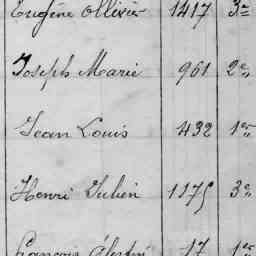 Eugène Ollivier 1417 3e
Joseph Marie 961 2e
Jean Louis 432 1er
Henri Julien 1175 3e
François Célestin 17 1er